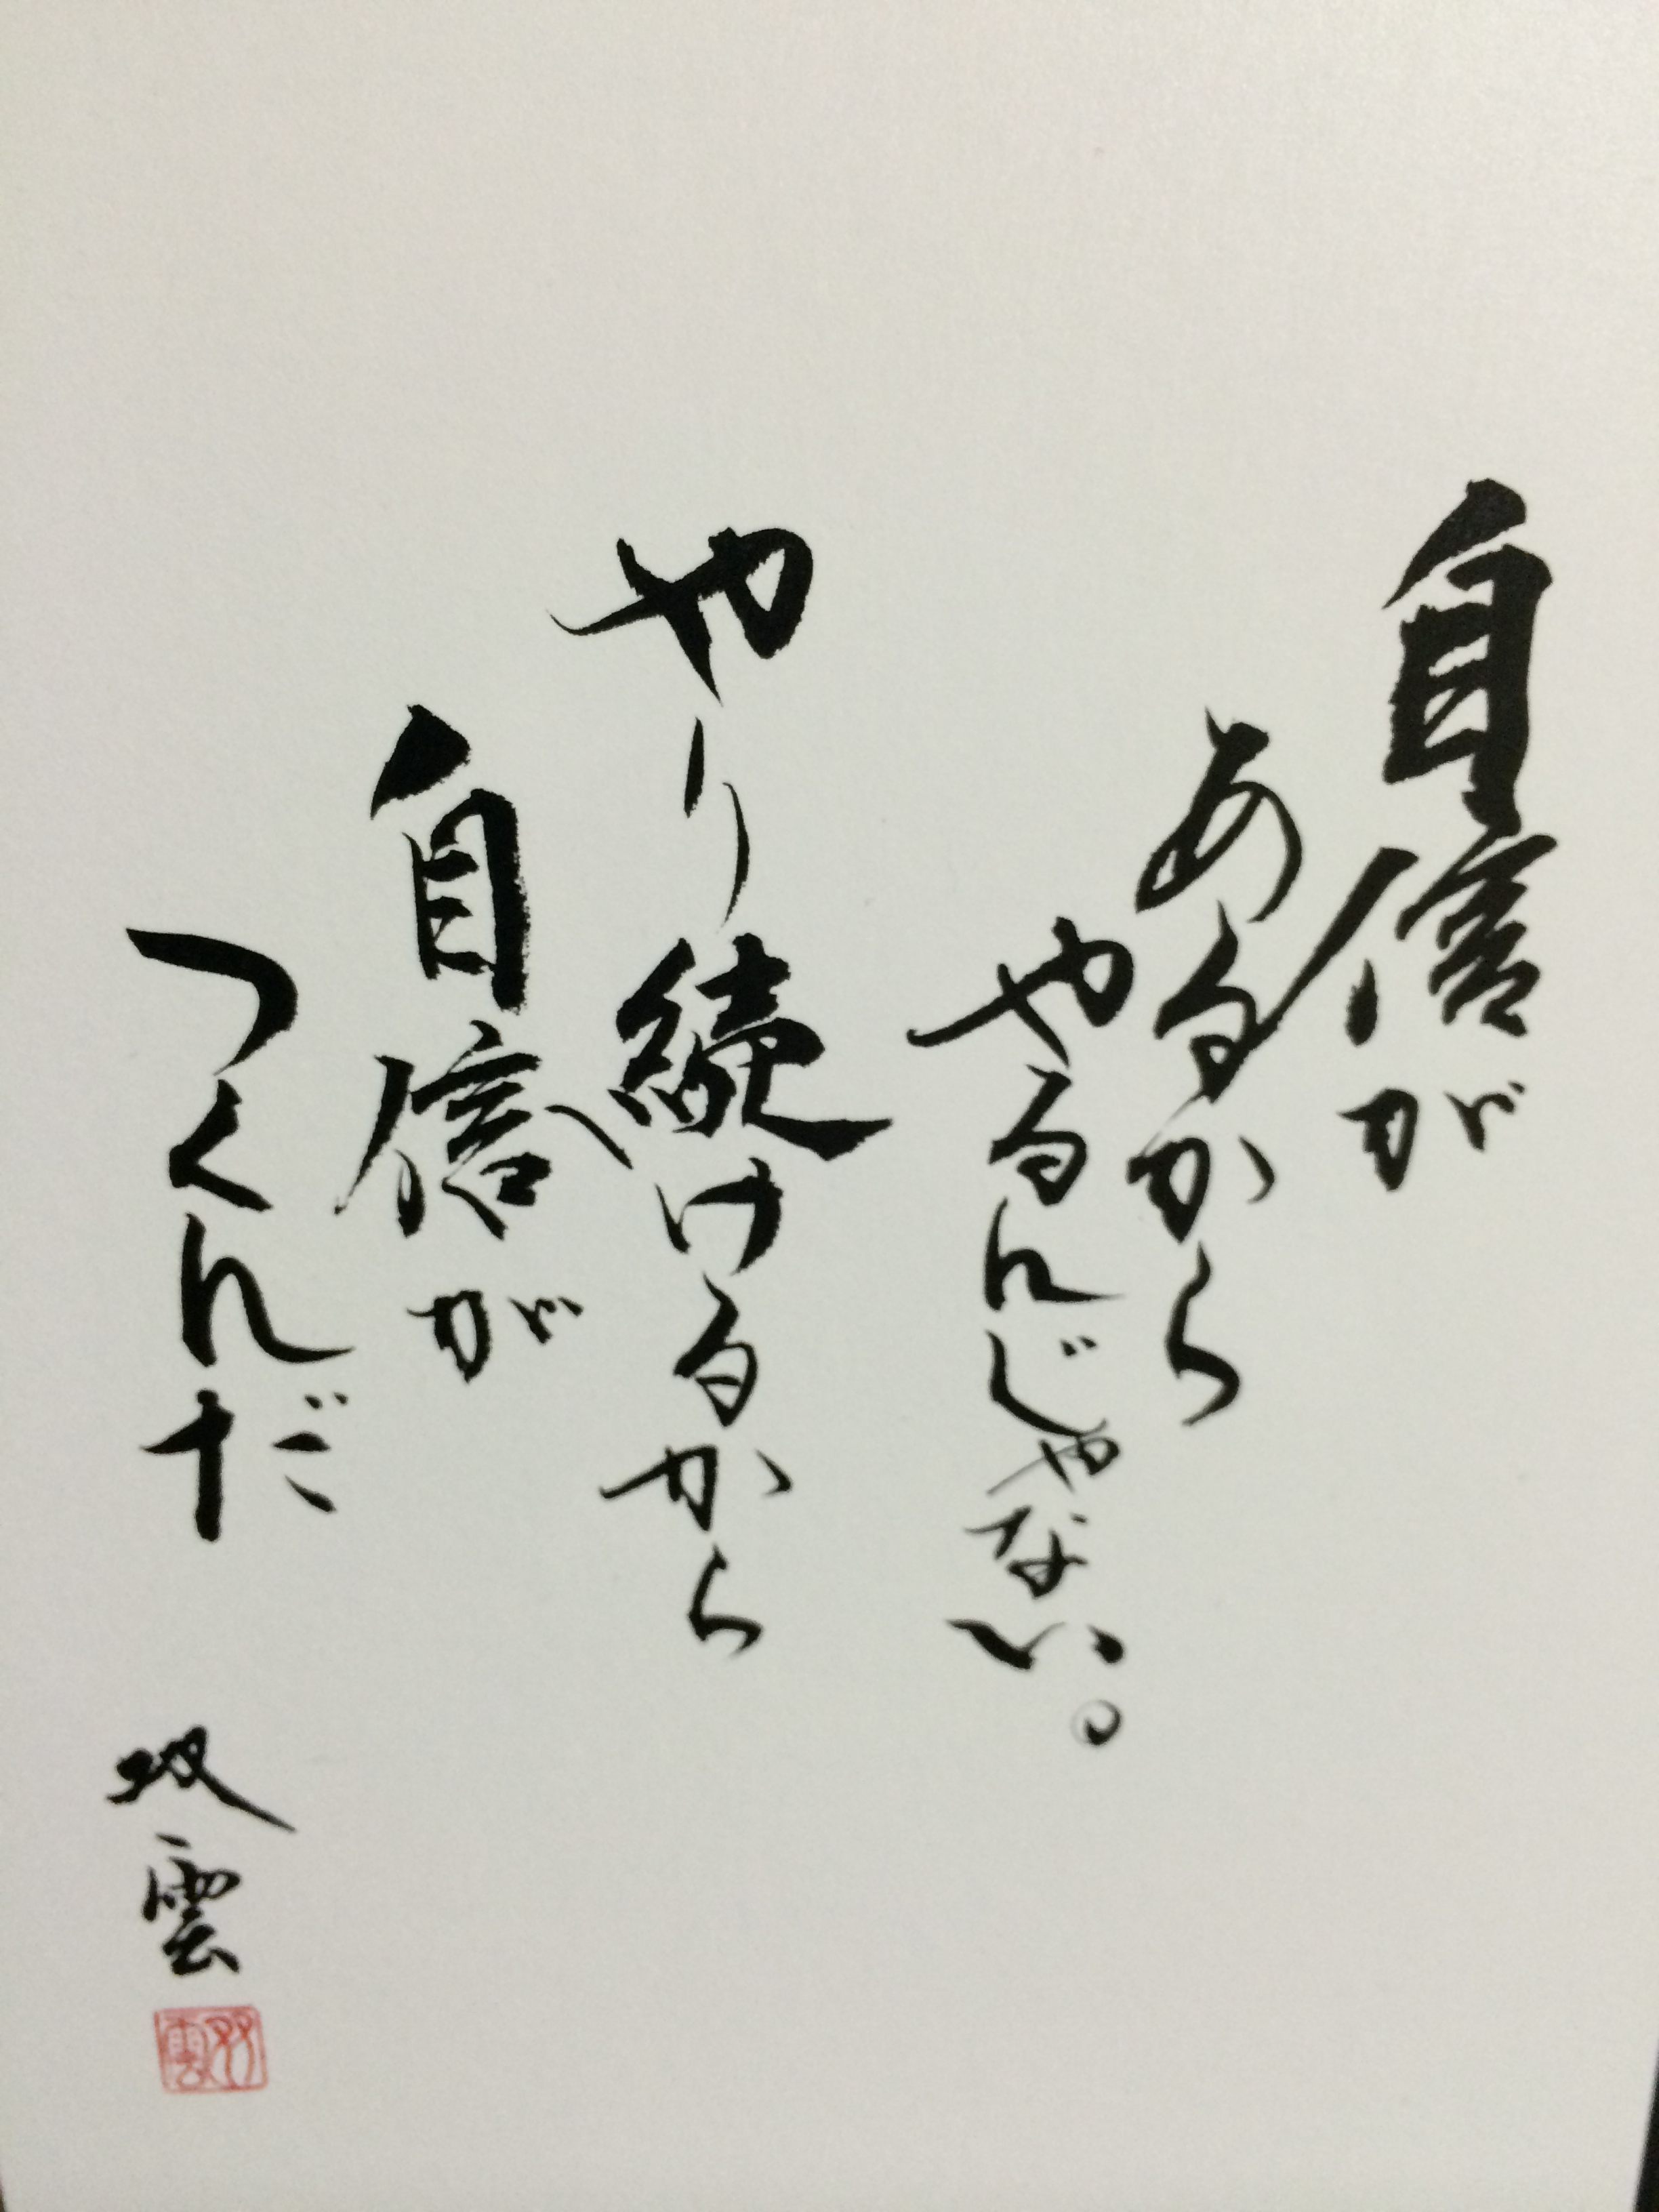 自信が
あるから
やるんじゃない。
やり続けるから
自信が
つくんだ
双雲
双雲